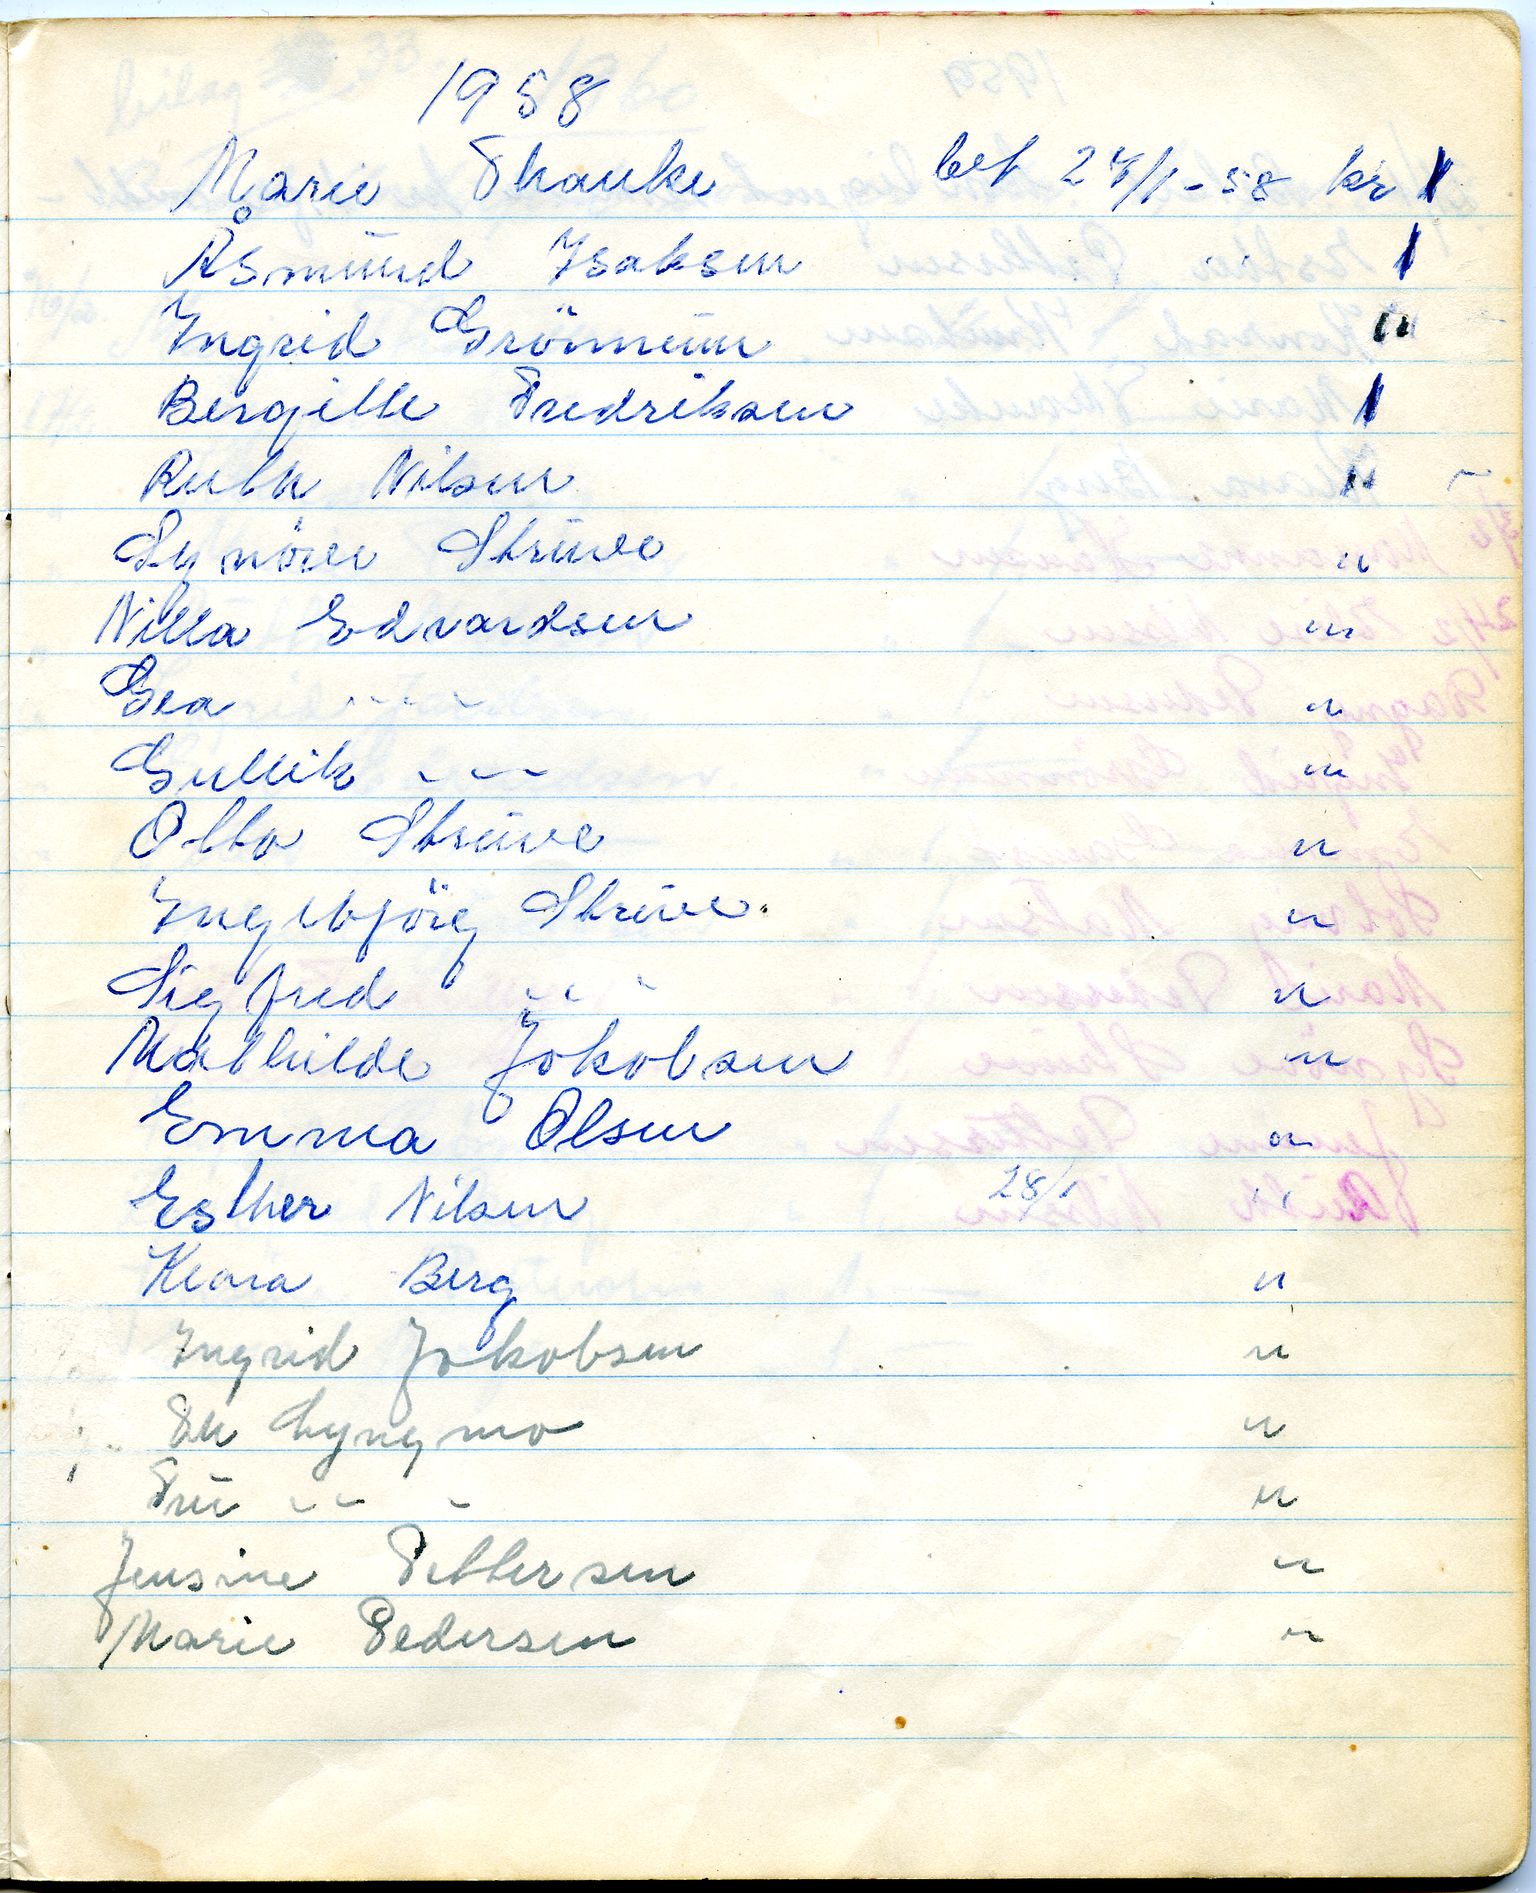 1958
Marie Thauke bet 24/1-58 kr 1
Åsmund Isaksen 1
Ingrid Grönnum "
Bergitte Fredriksen 1
Ruth Nilsen "
Synöve Strüve "
Nilla Edvardsen "
Gea - - - - "
Gullik - - - "
Otto Strüve "
Ingebjörg Strüve. "
Sigfred - - - "
Mathilde Jakobsen "
Emma Olsen "
Esther Nilsen 28/1 "
Klara Berg "
Ingrid Jakobsen "
Th Lyngmo "
Frü - - - "
Jensine Pettersen "
Marie Pedersen "